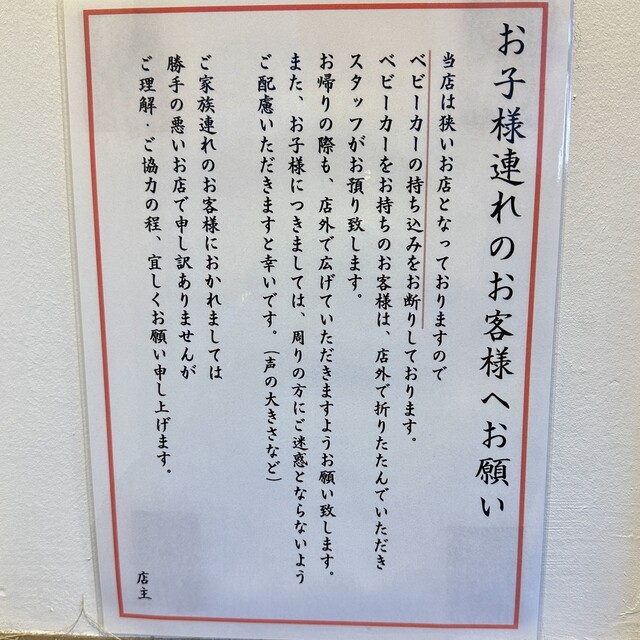 お子様連れのお客様へお願い
当店は狭いお店となっておりますので
ベビーカーの持ち込みをお断りしております。
ベビーカーをお持ちのお客様は、店外で折りたたんでいただき
スタッフがお預り致します。
お帰りの際も、店外で広げていただきますようお願い致します。
また、お子様につきましては、周りの方にご迷惑とならないよう
ご配慮いただきますと幸いです。(声の大きさなど)
ご家族連れのお客様におかれましては
勝手の悪いお店で申し訳ありませんが
ご理解・ご協力の程、宜しくお願い申し上げます。
店主